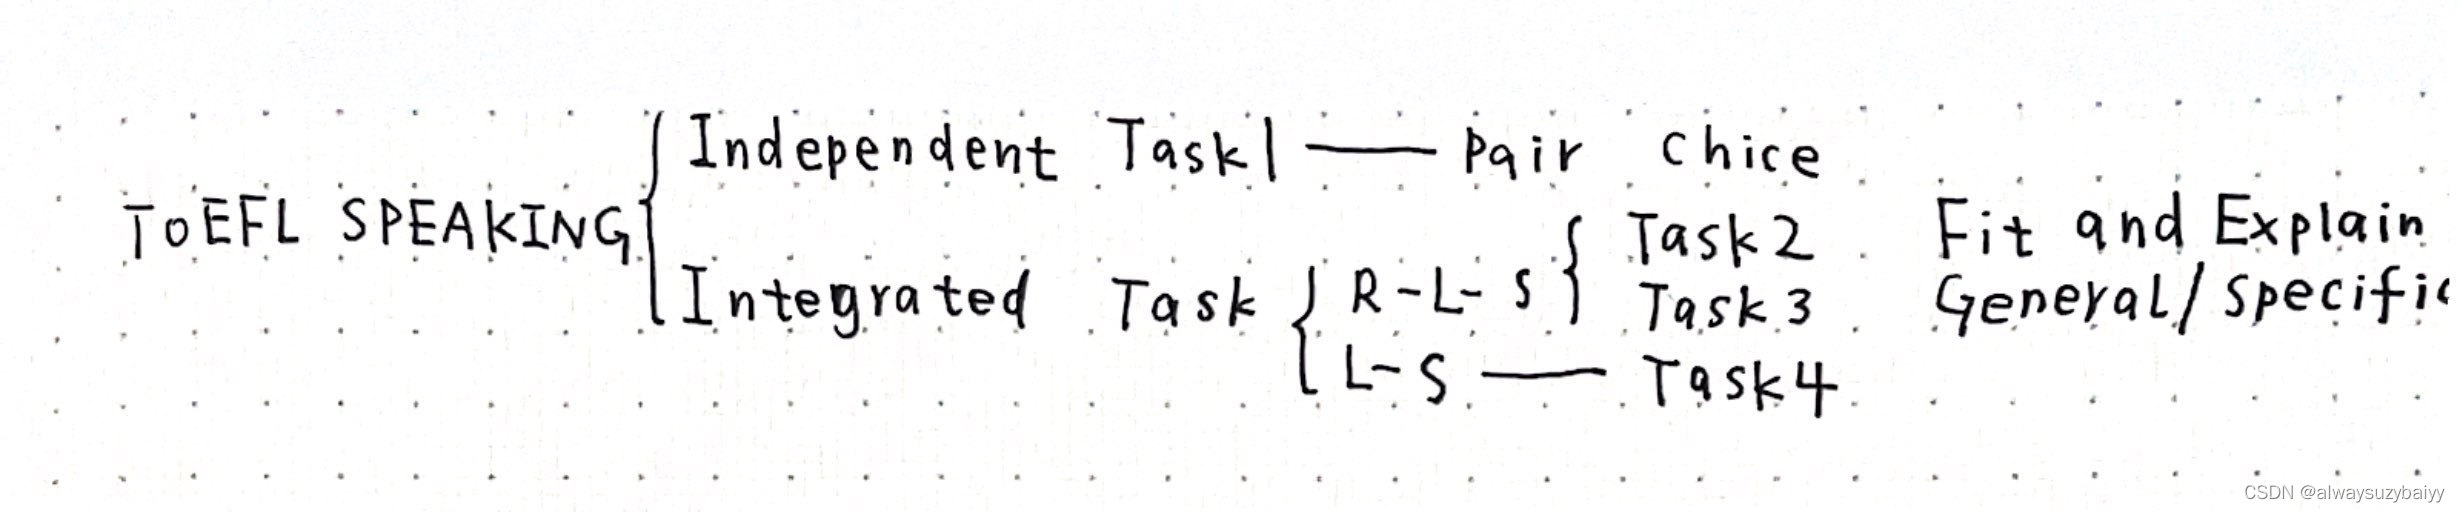 Independent Task1 — Pair chice
TOEFL SPEAKING
Task2 Fit and Explain
Integrated Task R-L-S
Task3 General/Specific
L-S — Task4
CSDN @alwaysuzybaiyy